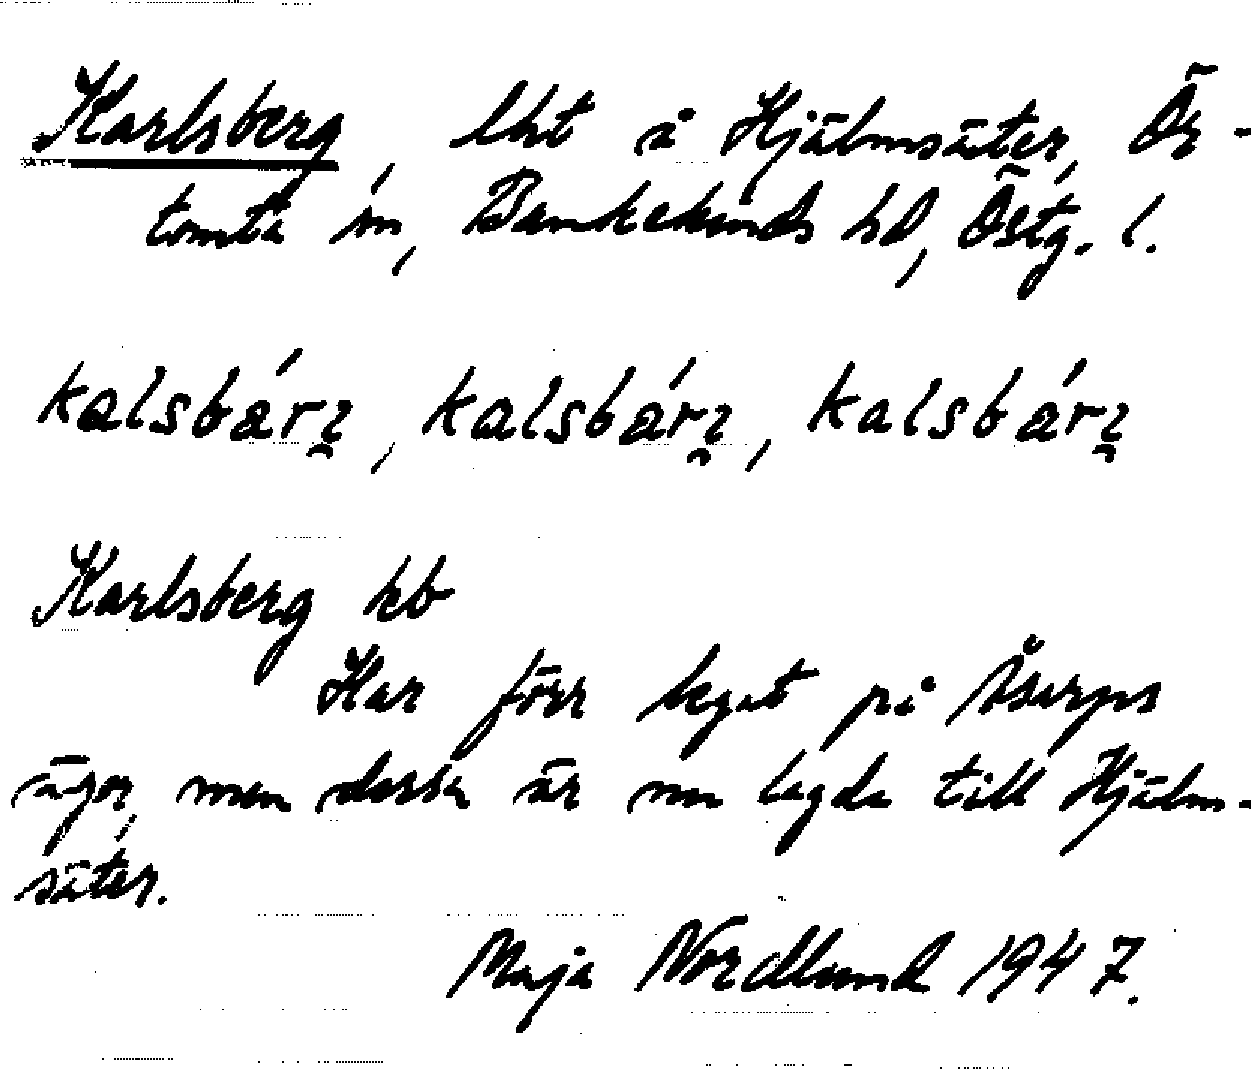 Karlsberg, lht å Hjälmsäter, Ör-
tomta sn, Bankekinds hd, Östg. l.
kalsbárꝫ, kalsbárꝫ, kalsbárꝫ
Karlsberg kb
Har förr legat på Åsarps
ägor, men dessa är nu lagda till Hjälm-
säter.
Maja Nordlund 1947.